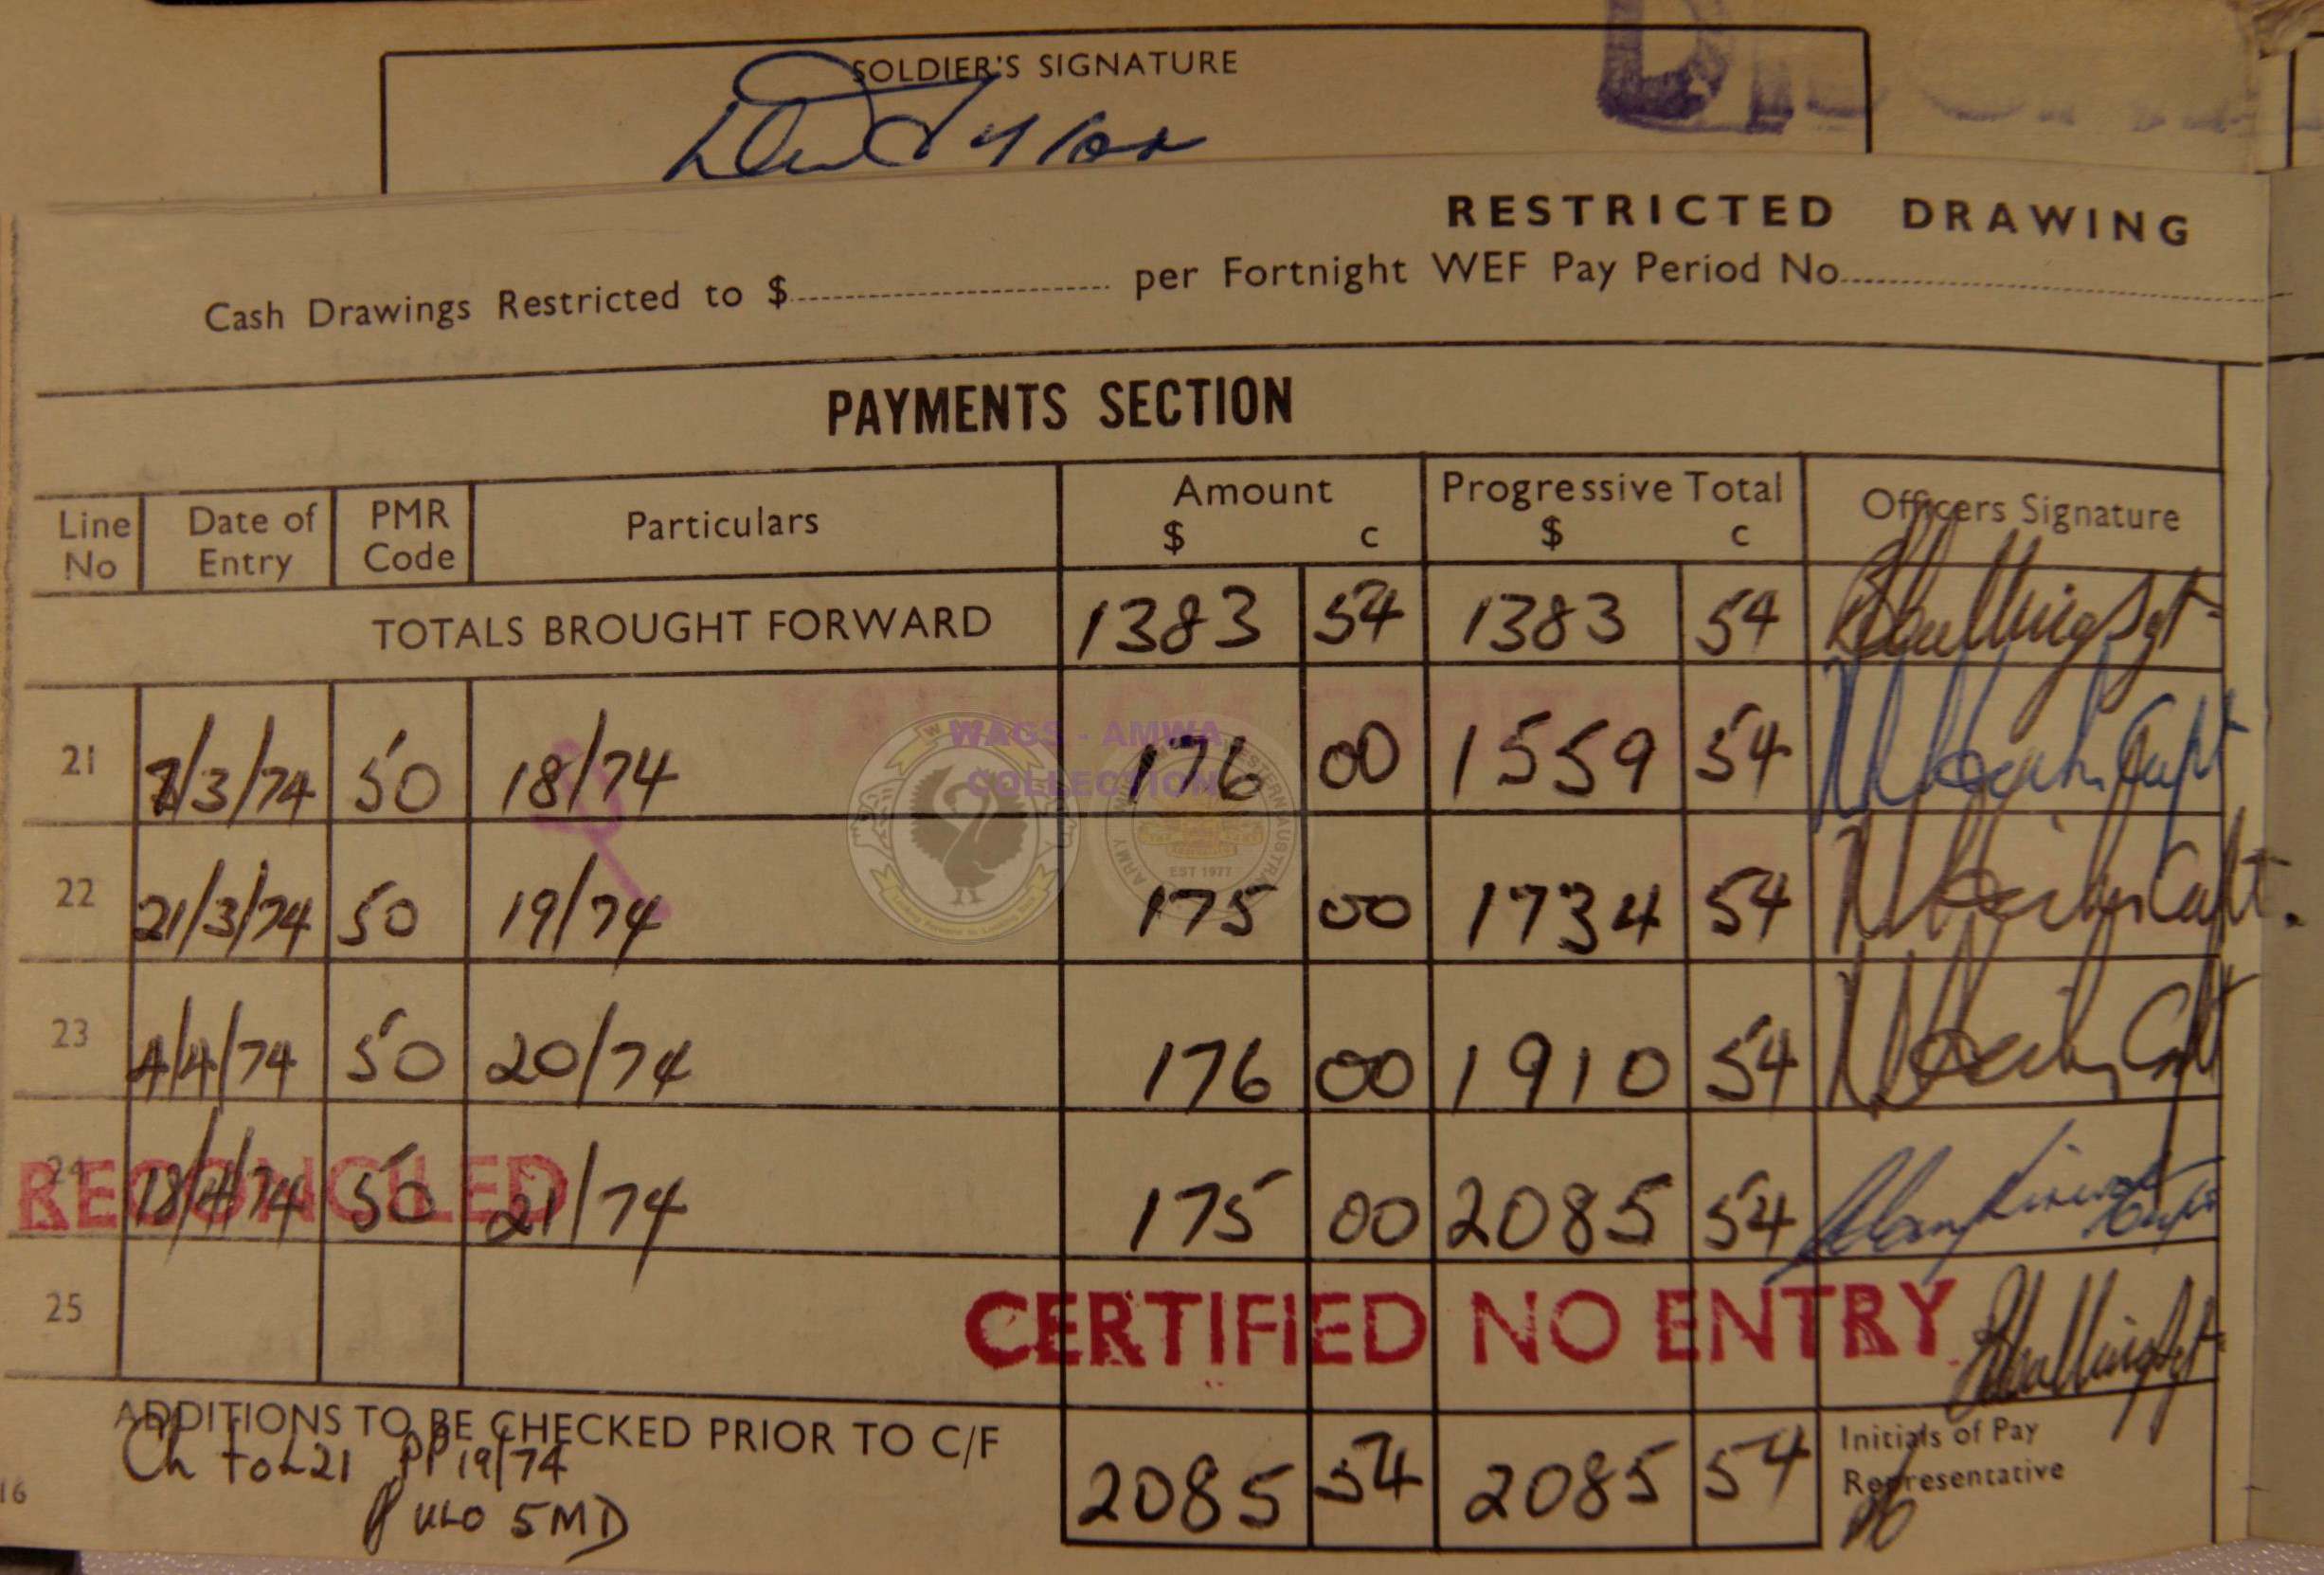 SOLDIER'S SIGNATURE
RESTRICTED DRAWING
Cash Drawings Restricted to $ per Fortnight WEF Pay Period No
PAYMENTS SECTION
Line No Date of Entry PMR Code Particulars Amount $ c Progressive Total $ c Officers Signature
TOTALS BROUGHT FORWARD 1383 54 1383 54 Sgt
21 7/3/74 50 18/74 176 00 1559 54 Capt
WAGS - AMWA
COLLECTION
EST 1977
22 21/3/74 50 19/74 175 00 1734 54 Capt.
23 4/4/74 50 20/74 176 00 1910 54 Capt
24 18/4/74 50 21/74 175 00 2085 54 Capt
RECONCILED
25
CERTIFIED NO ENTRY Sgt
ADDITIONS TO BE CHECKED PRIOR TO C/F 2085 54 2085 54 Initials of Pay Representative
Ch to L21 PP 19/74
5MD
16